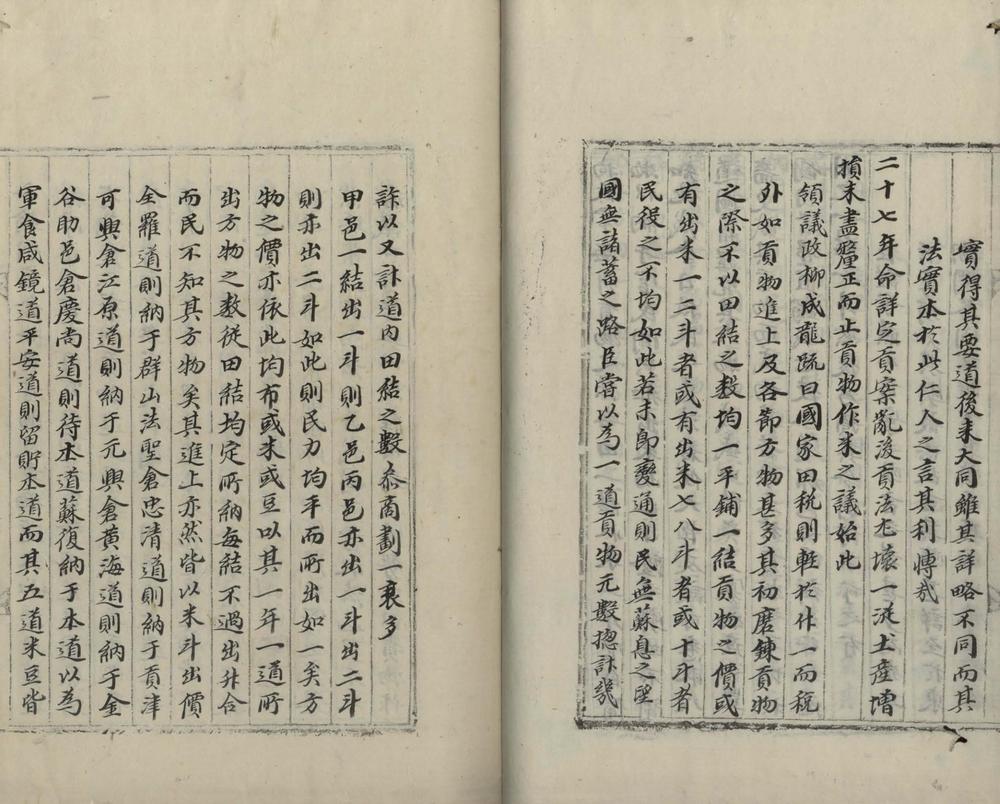 實得其要道後來大同雖其詳略不同而其
法實本於此仁人之言其利博哉
二十七年命詳定貢案亂後貢法尤壞一從土産增
損未盡釐正而止貢物作米之議始此
領議政柳成龍疏曰國家田稅則輕於什一而稅
外如貢物進上及各節方物甚多其初磨鍊貢物
之際不以田結之數均一平鋪一結貢物之價或
有出米一二斗者或有出米七八斗者或十斗者
民役之不均如此若未卽變通則民無蘇息之望
國無諸蓄之路臣嘗以為一道貢物元數揔計幾
許以又計道內田結之數叅商劃一裒多
甲邑一結出一斗則乙邑丙邑亦出一斗出二斗
則亦出二斗如此則民力均平而所出如一矣方
物之價亦依此均布或米或豆以其一年一道所
出方物之數從田結均定所納每結不過出升合
而民不知其方物矣其進上亦然皆以米斗出價
全羅道則納于群山法聖倉忠清道則納于貢津
可興倉江原道則納于元興倉黃海道則納于金
谷助邑倉慶尚道則待本道蘇復納于本道以為
軍食咸鏡道平安道則留貯本道而其五道米豆皆